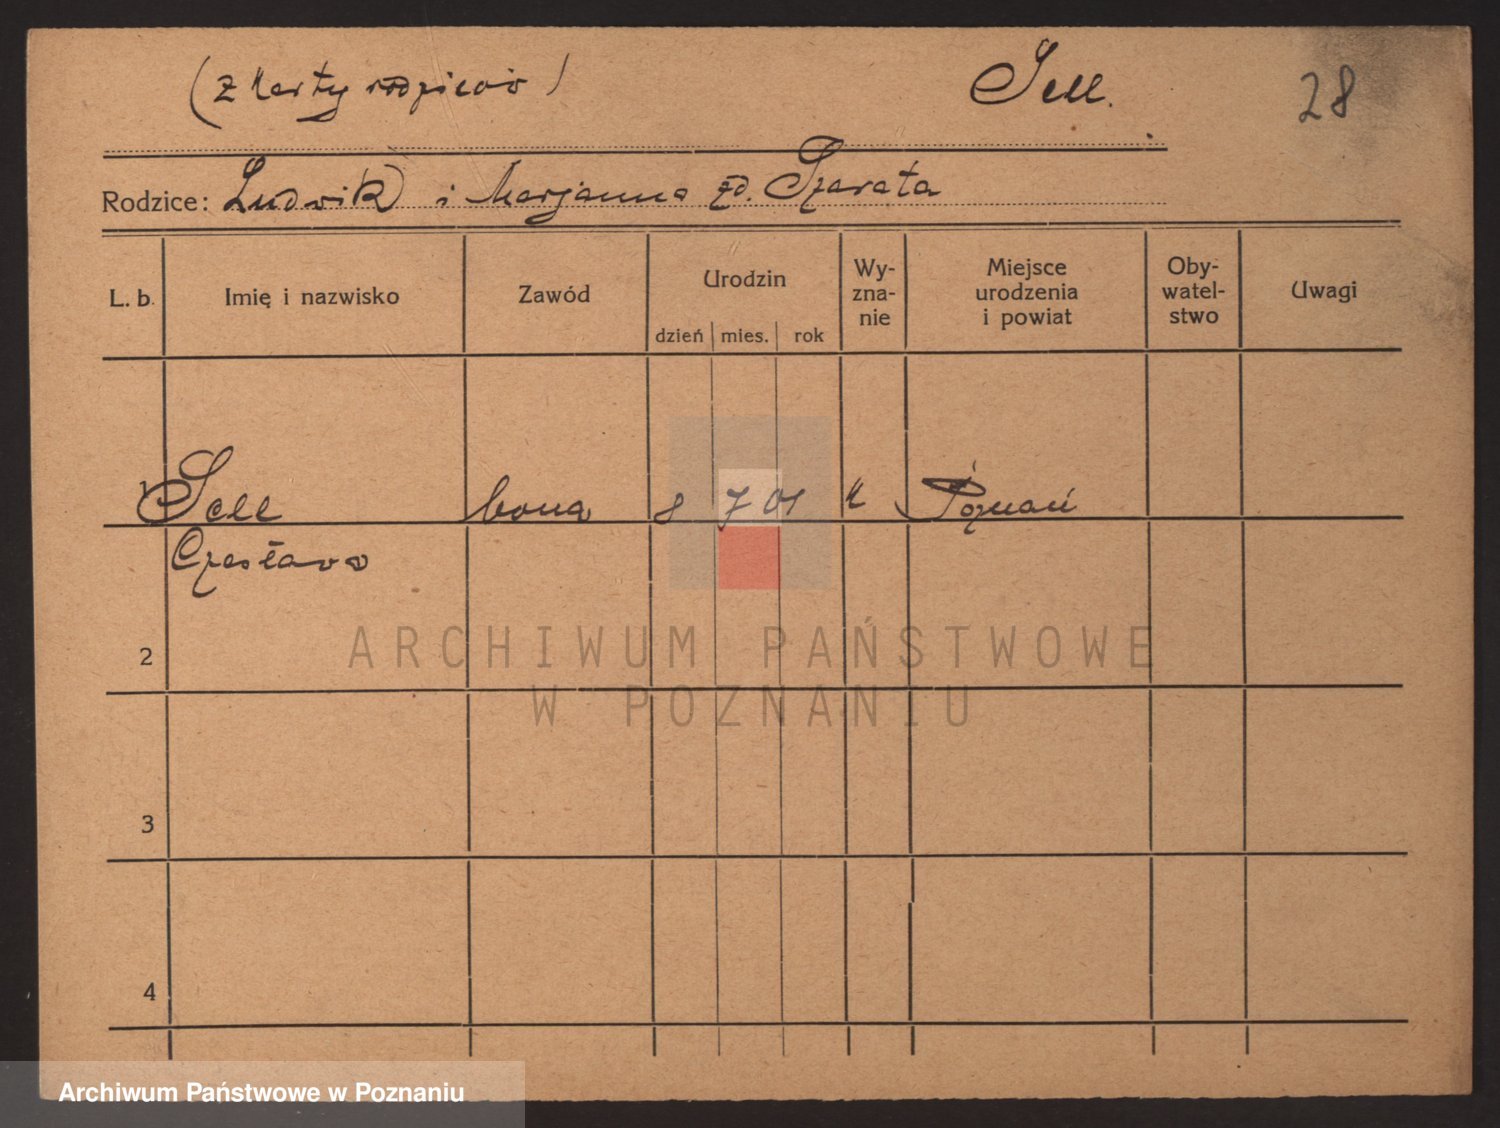 (z karty rodziców) Sell. 28
Rodzice: Ludwik i Marjanna zd. Szarata
L. b. Imię i nazwisko Zawód Urodzin Wy- Miejsce Oby- Uwagi
zna- urodzenia watel-
nie i powiat stwo
dzień mies. rok
1 Sell bona 8 7 01 k Poznań
Czesława
2
3
4
ARCHIWUM PAŃSTWOWE
W POZNANIU
Archiwum Państwowe w Poznaniu